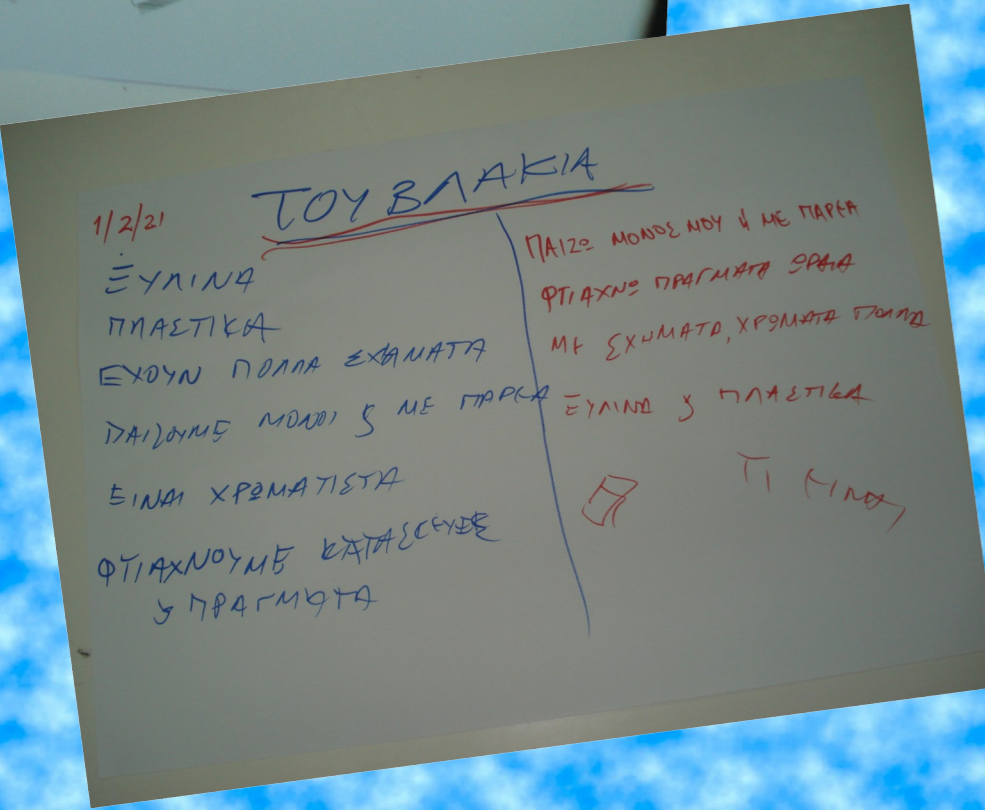 1/2/21
ΤΟΥΒΛΑΚΙΑ
ΞΥΛΙΝΑ
ΠΛΑΣΤΙΚΑ
ΕΧΟΥΝ ΠΟΛΛΑ ΣΧΗΜΑΤΑ
ΠΑΙΖΟΥΜΕ ΜΟΝΟΙ ϗ ΜΕ ΠΑΡΕΑ
ΕΙΝΑΙ ΧΡΩΜΑΤΙΣΤΑ
ΦΤΙΑΧΝΟΥΜΕ ΚΑΤΑΣΚΕΥΕΣ
ϗ ΠΡΑΓΜΑΤΑ
ΠΑΙΖΩ ΜΟΝΟΣ ΜΟΥ Ή ΜΕ ΠΑΡΕΑ
ΦΤΙΑΧΝΩ ΠΡΑΓΜΑΤΑ ΩΡΑΙΑ
ΜΕ ΣΧΗΜΑΤΑ, ΧΡΩΜΑΤΑ ΠΟΛΛΑ
ΞΥΛΙΝΑ ϗ ΠΛΑΣΤΙΚΑ
ΤΙ ΕΙΝΑΙ